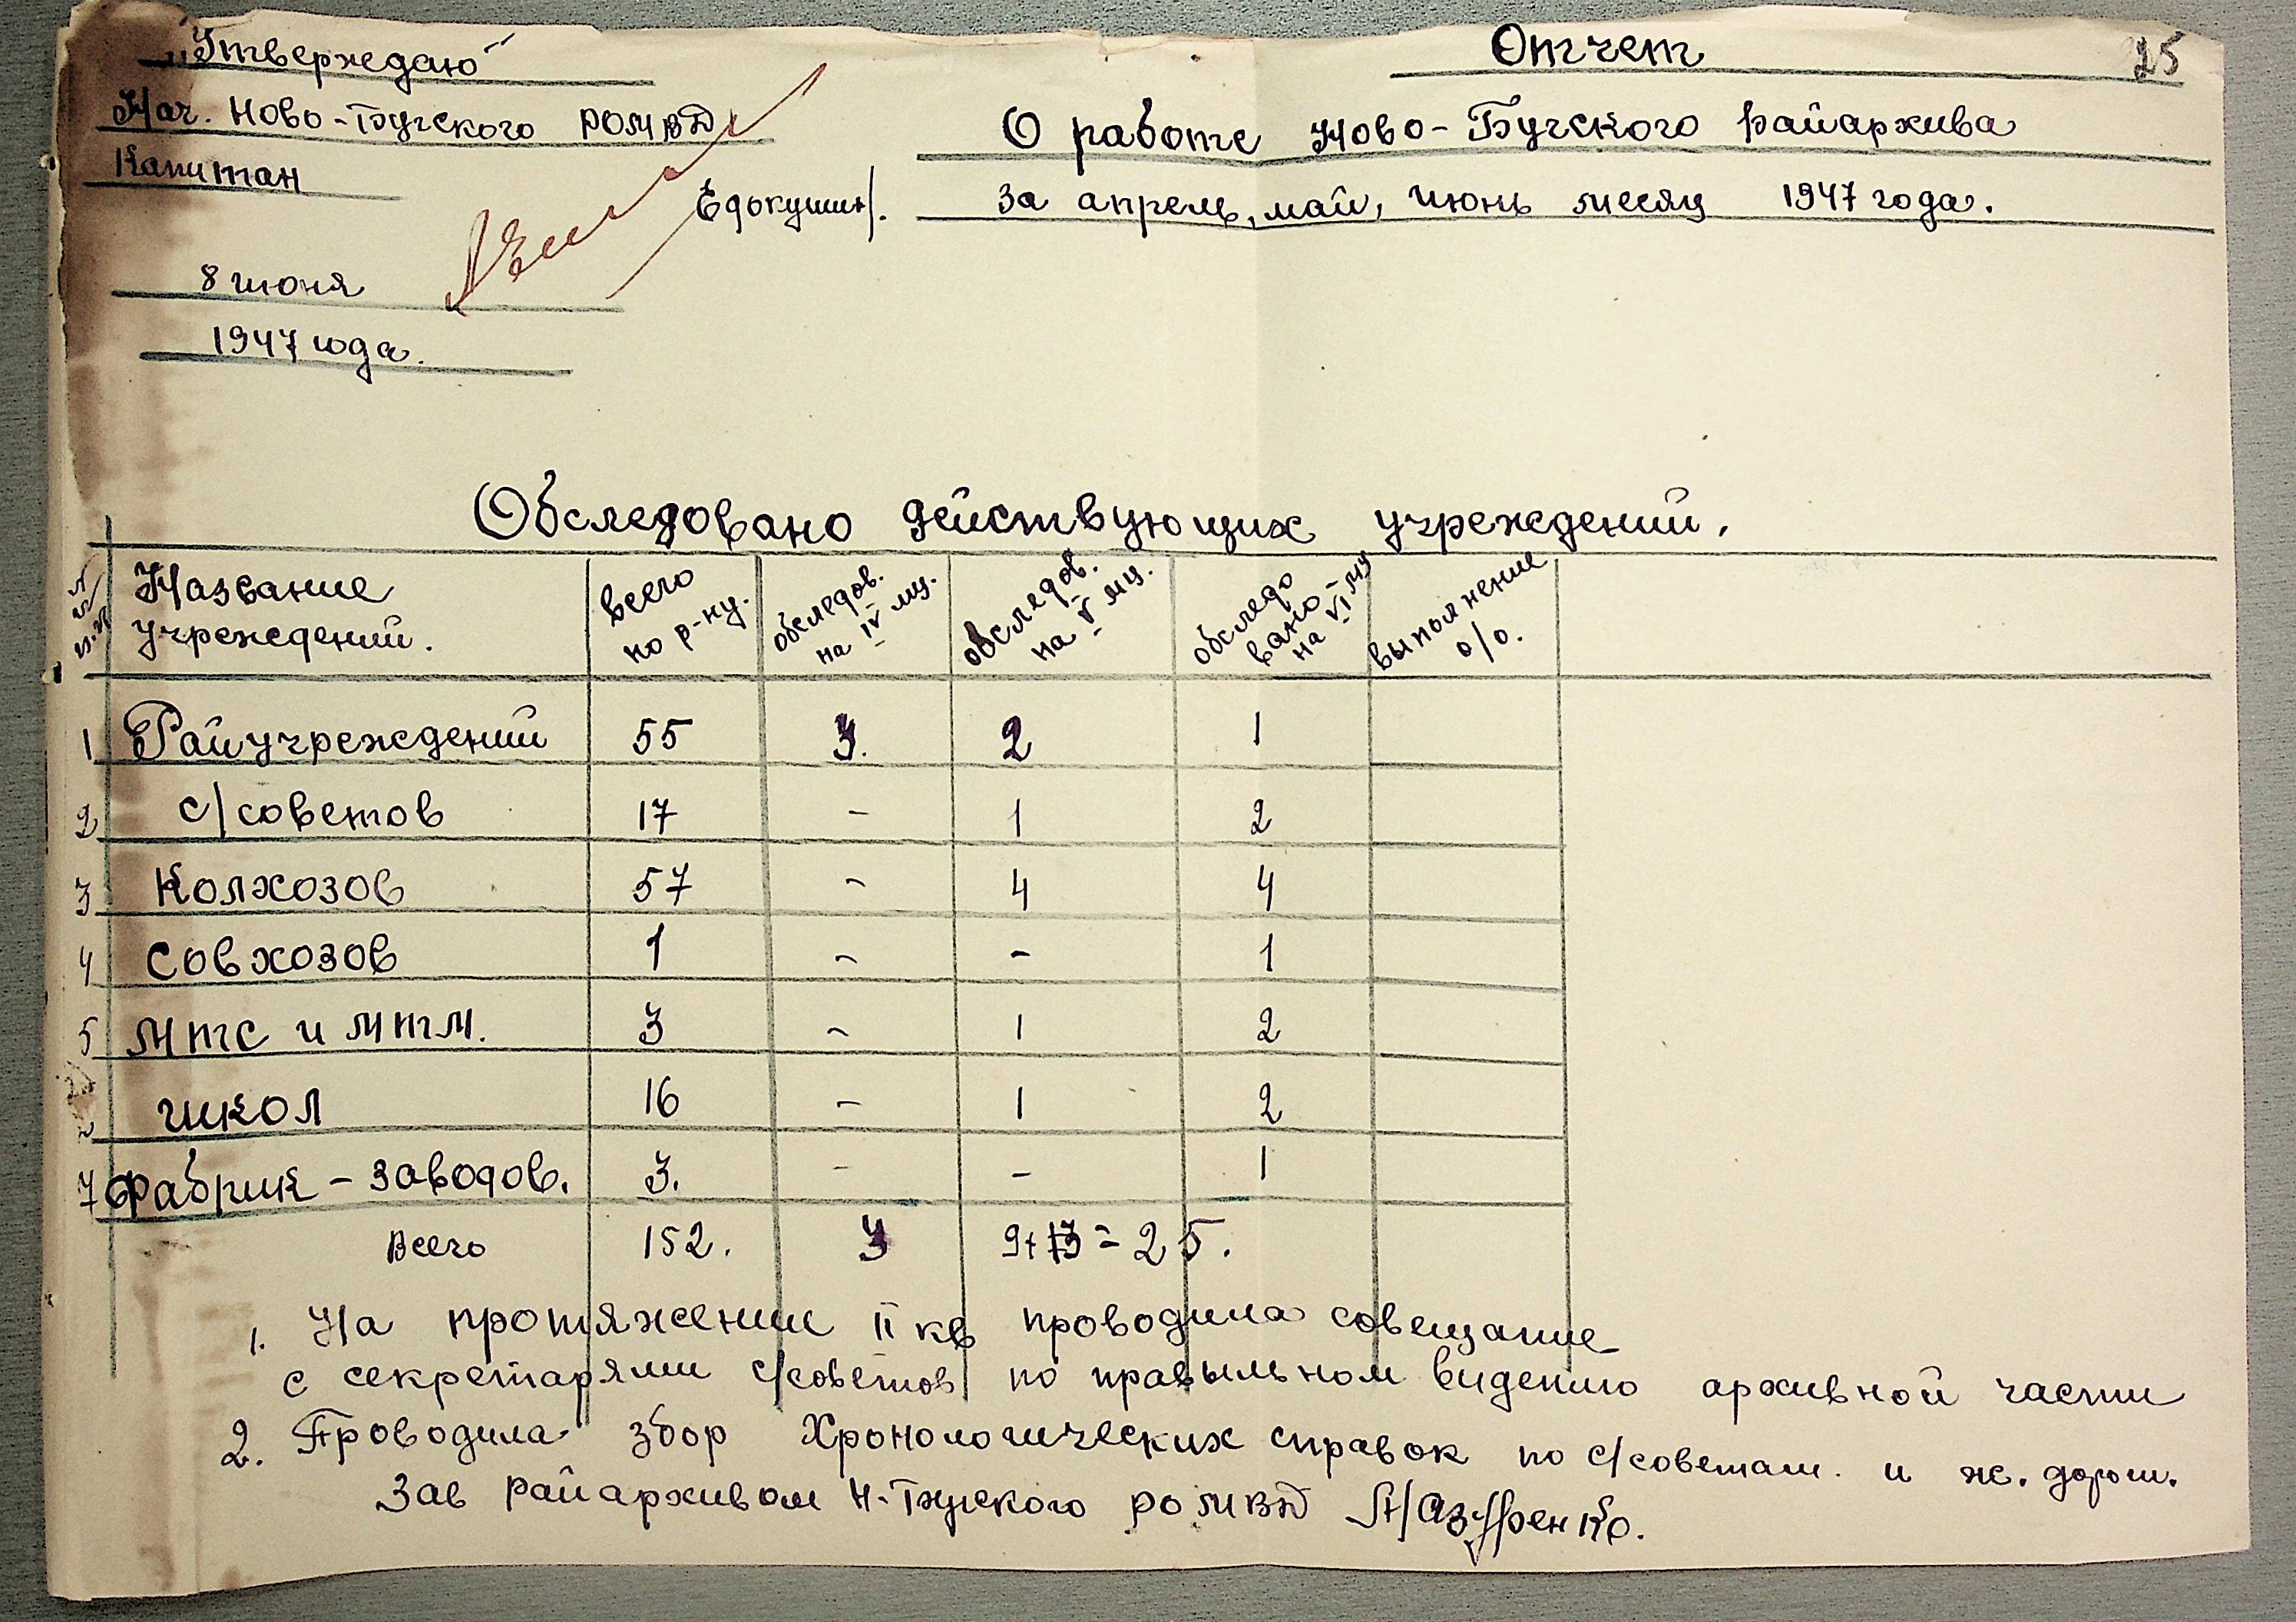 „Утверждаю"
Нач. Ново-Бугского РОМВД
Капитан
Едокушин/.
8 июня
1947 года.
25
Отчет
О работе Ново-Бугского Райархива
За апрель, май, июнь месяц 1947 года.
Обследовано действующих учреждений.
Название учреждений. | всего по р-ну. | обследов. на IV мц. | обследов. на V мц. | обследовано на VI мц | выполнение о/о.
1 Райучреждений 55 3. 2 1
2 с/советов 17 - 1 2
3 Колхозов 57 - 4 4
4 Совхозов 1 - - 1
5 МТС и МТМ. 3 - 1 2
школ 16 - 1 2
7 Фабрик - заводов. 3. - - 1
Всего 152. 3 9+13=25.
1. На протяжении II кв проводила совещание
с секретарями с/советов по правыльном видению архивной части
2. Проводила збор Хронологических справок по с/советам. и ж. дорош.
Зав Райархивом Н-Бугского РОМВД